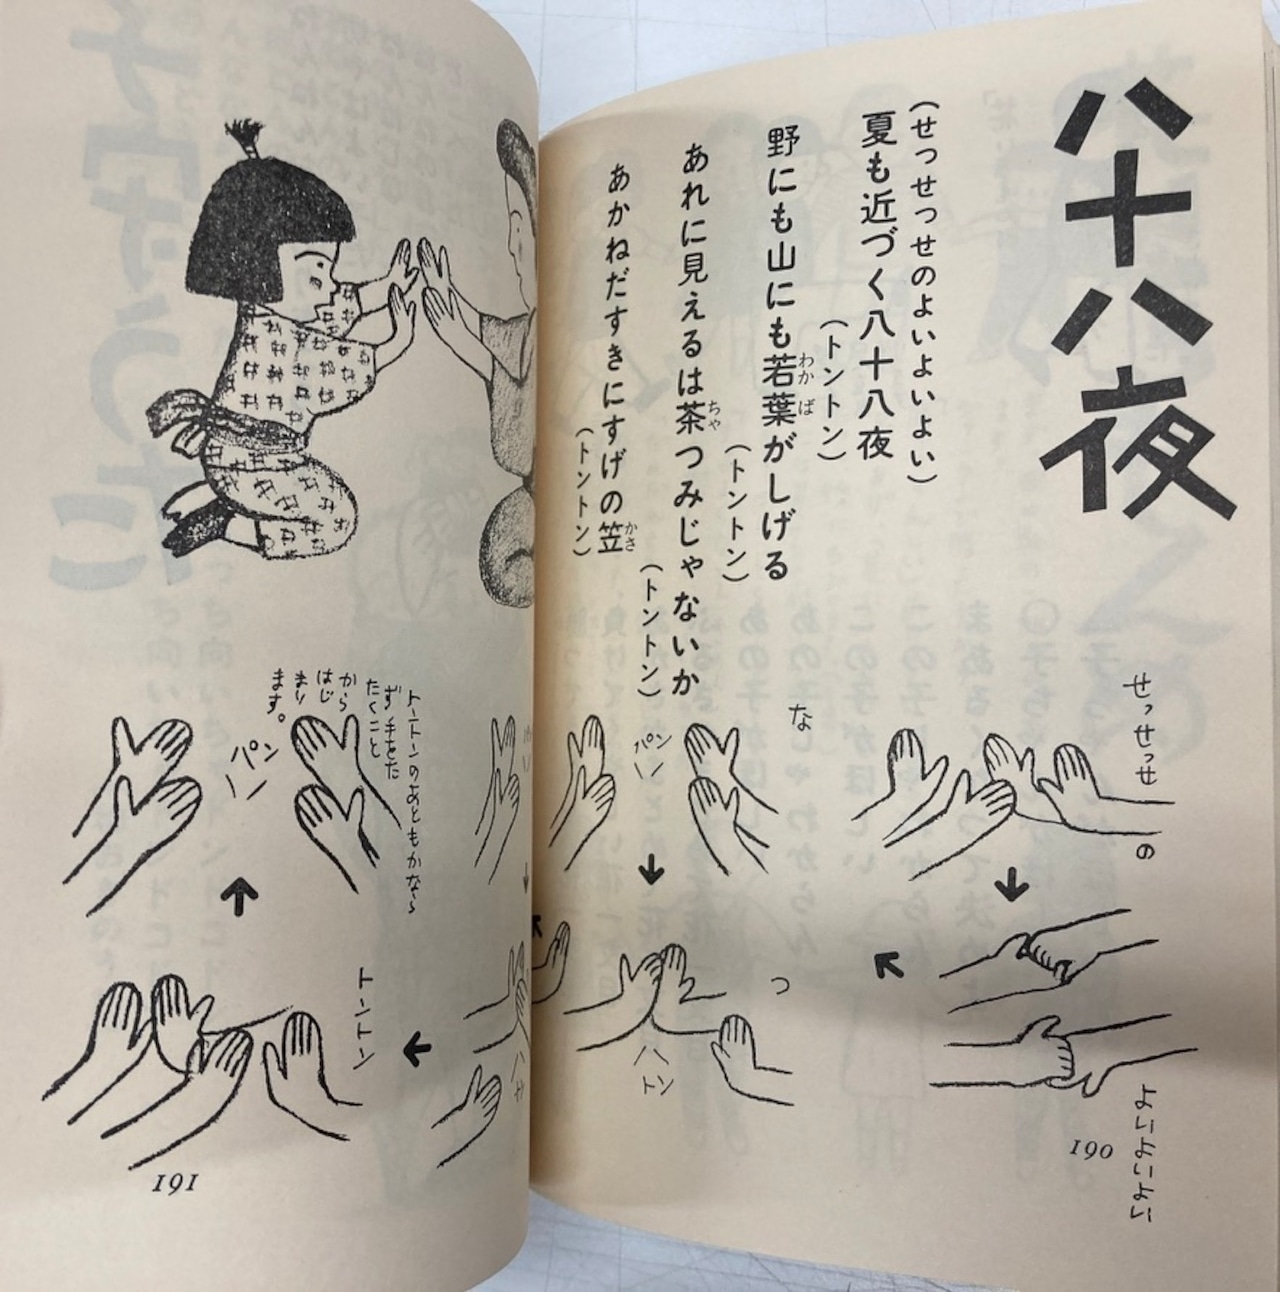 八十八夜
(せっせっせのよいよいよい)
夏も近づく八十八夜
(トントン)
野にも山にも若葉がしげる
わかば
(トントン)
あれに見えるは茶つみじゃないか
ちゃ
(トントン)
あかねだすきにすげの笠
かさ
(トントン)
せっせっせ
の
よいよいよい
190
な
パン
つ
トン
トントンのあともかならず手をたたくことからはじまります。
パン
トントン
191